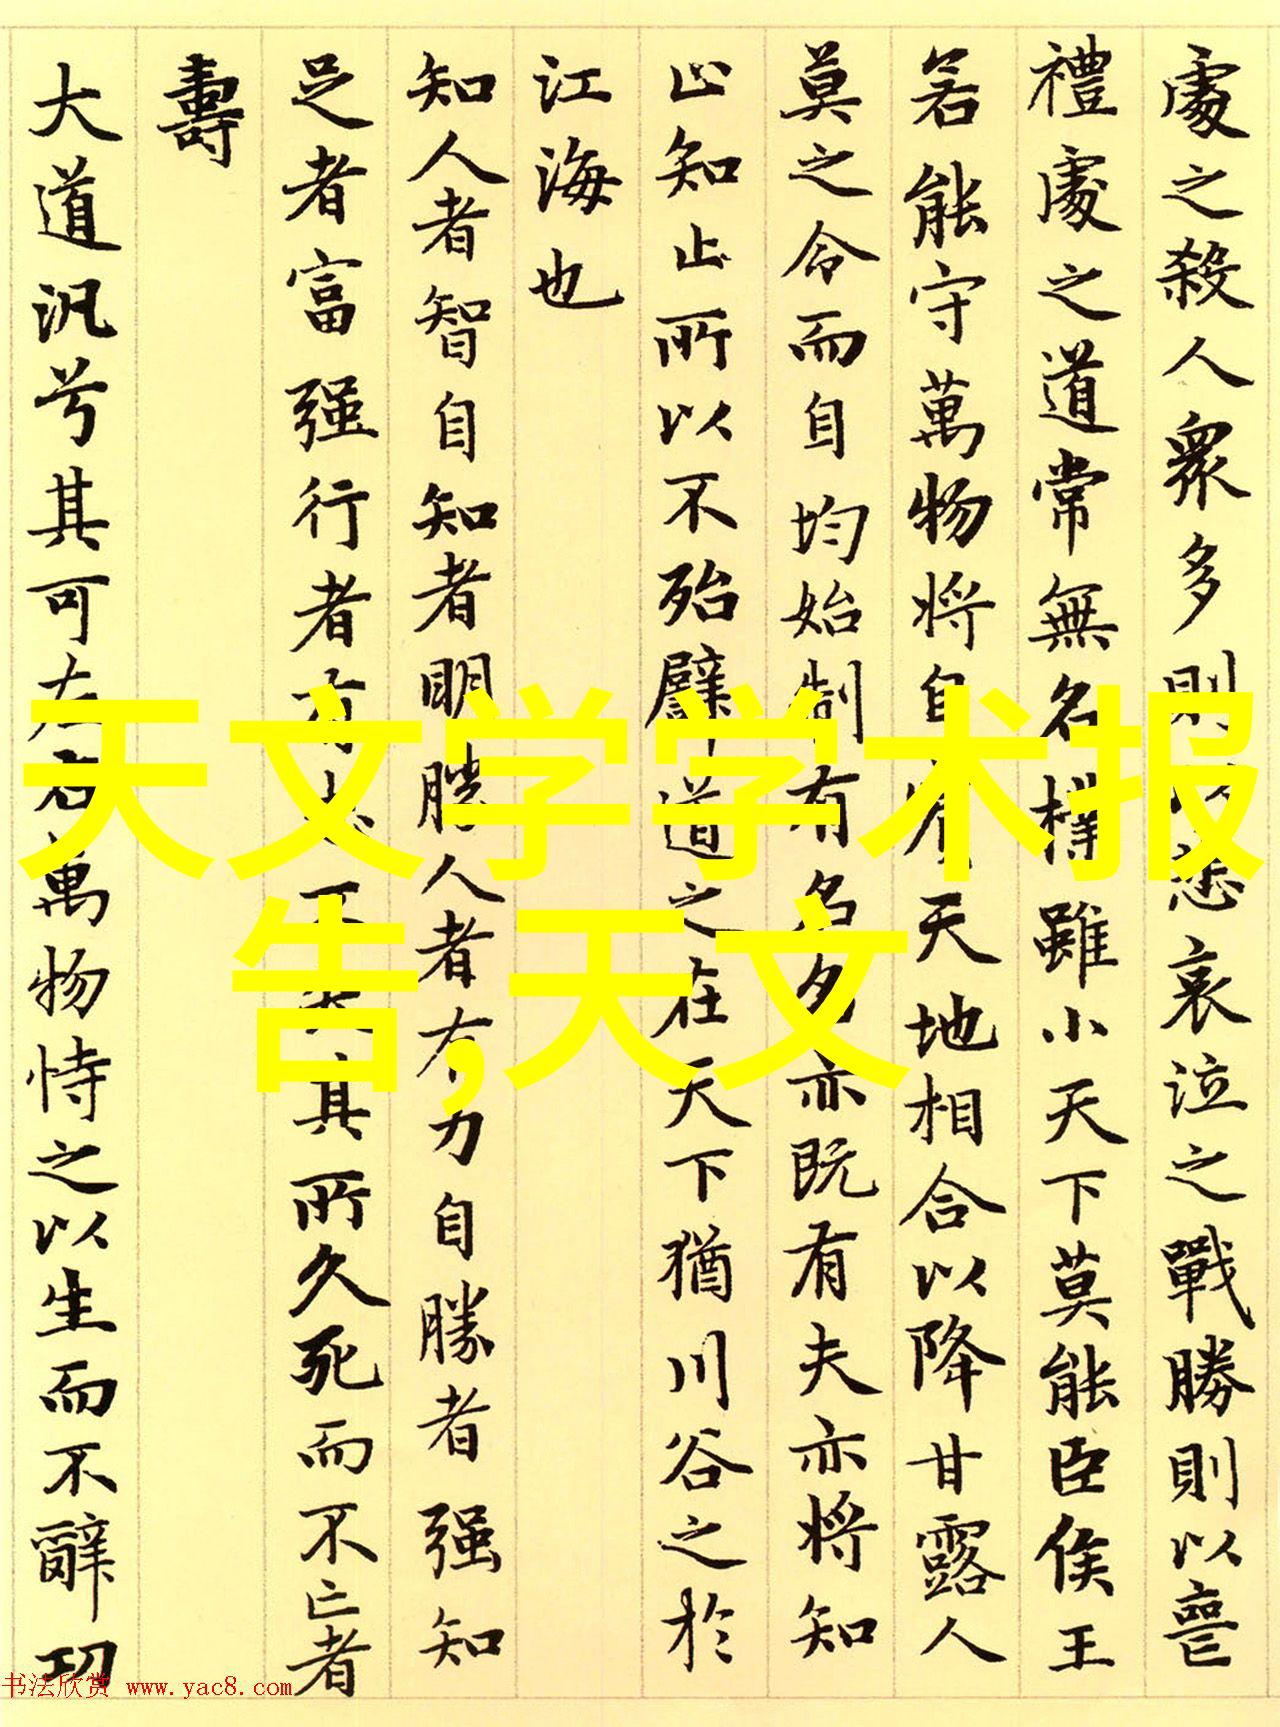 處之殺人眾多則以悲哀泣之戰勝則以喪
禮處之道常無名樸雖小天下莫能臣侯王
若能守萬物將自賓天地相合以降甘露人
莫之令而自均始制有名名亦既有夫亦將知
止知止所以不殆譬道之在天下猶川谷之於
江海也
知人者智自知者明勝人者有力自勝者强知
足者富强行者有志不失其所久死而不亡者
壽
大道汎兮其可左右萬物恃之以生而不辭功
天文学学术报
告,天文
书法欣赏 www.yac8.com